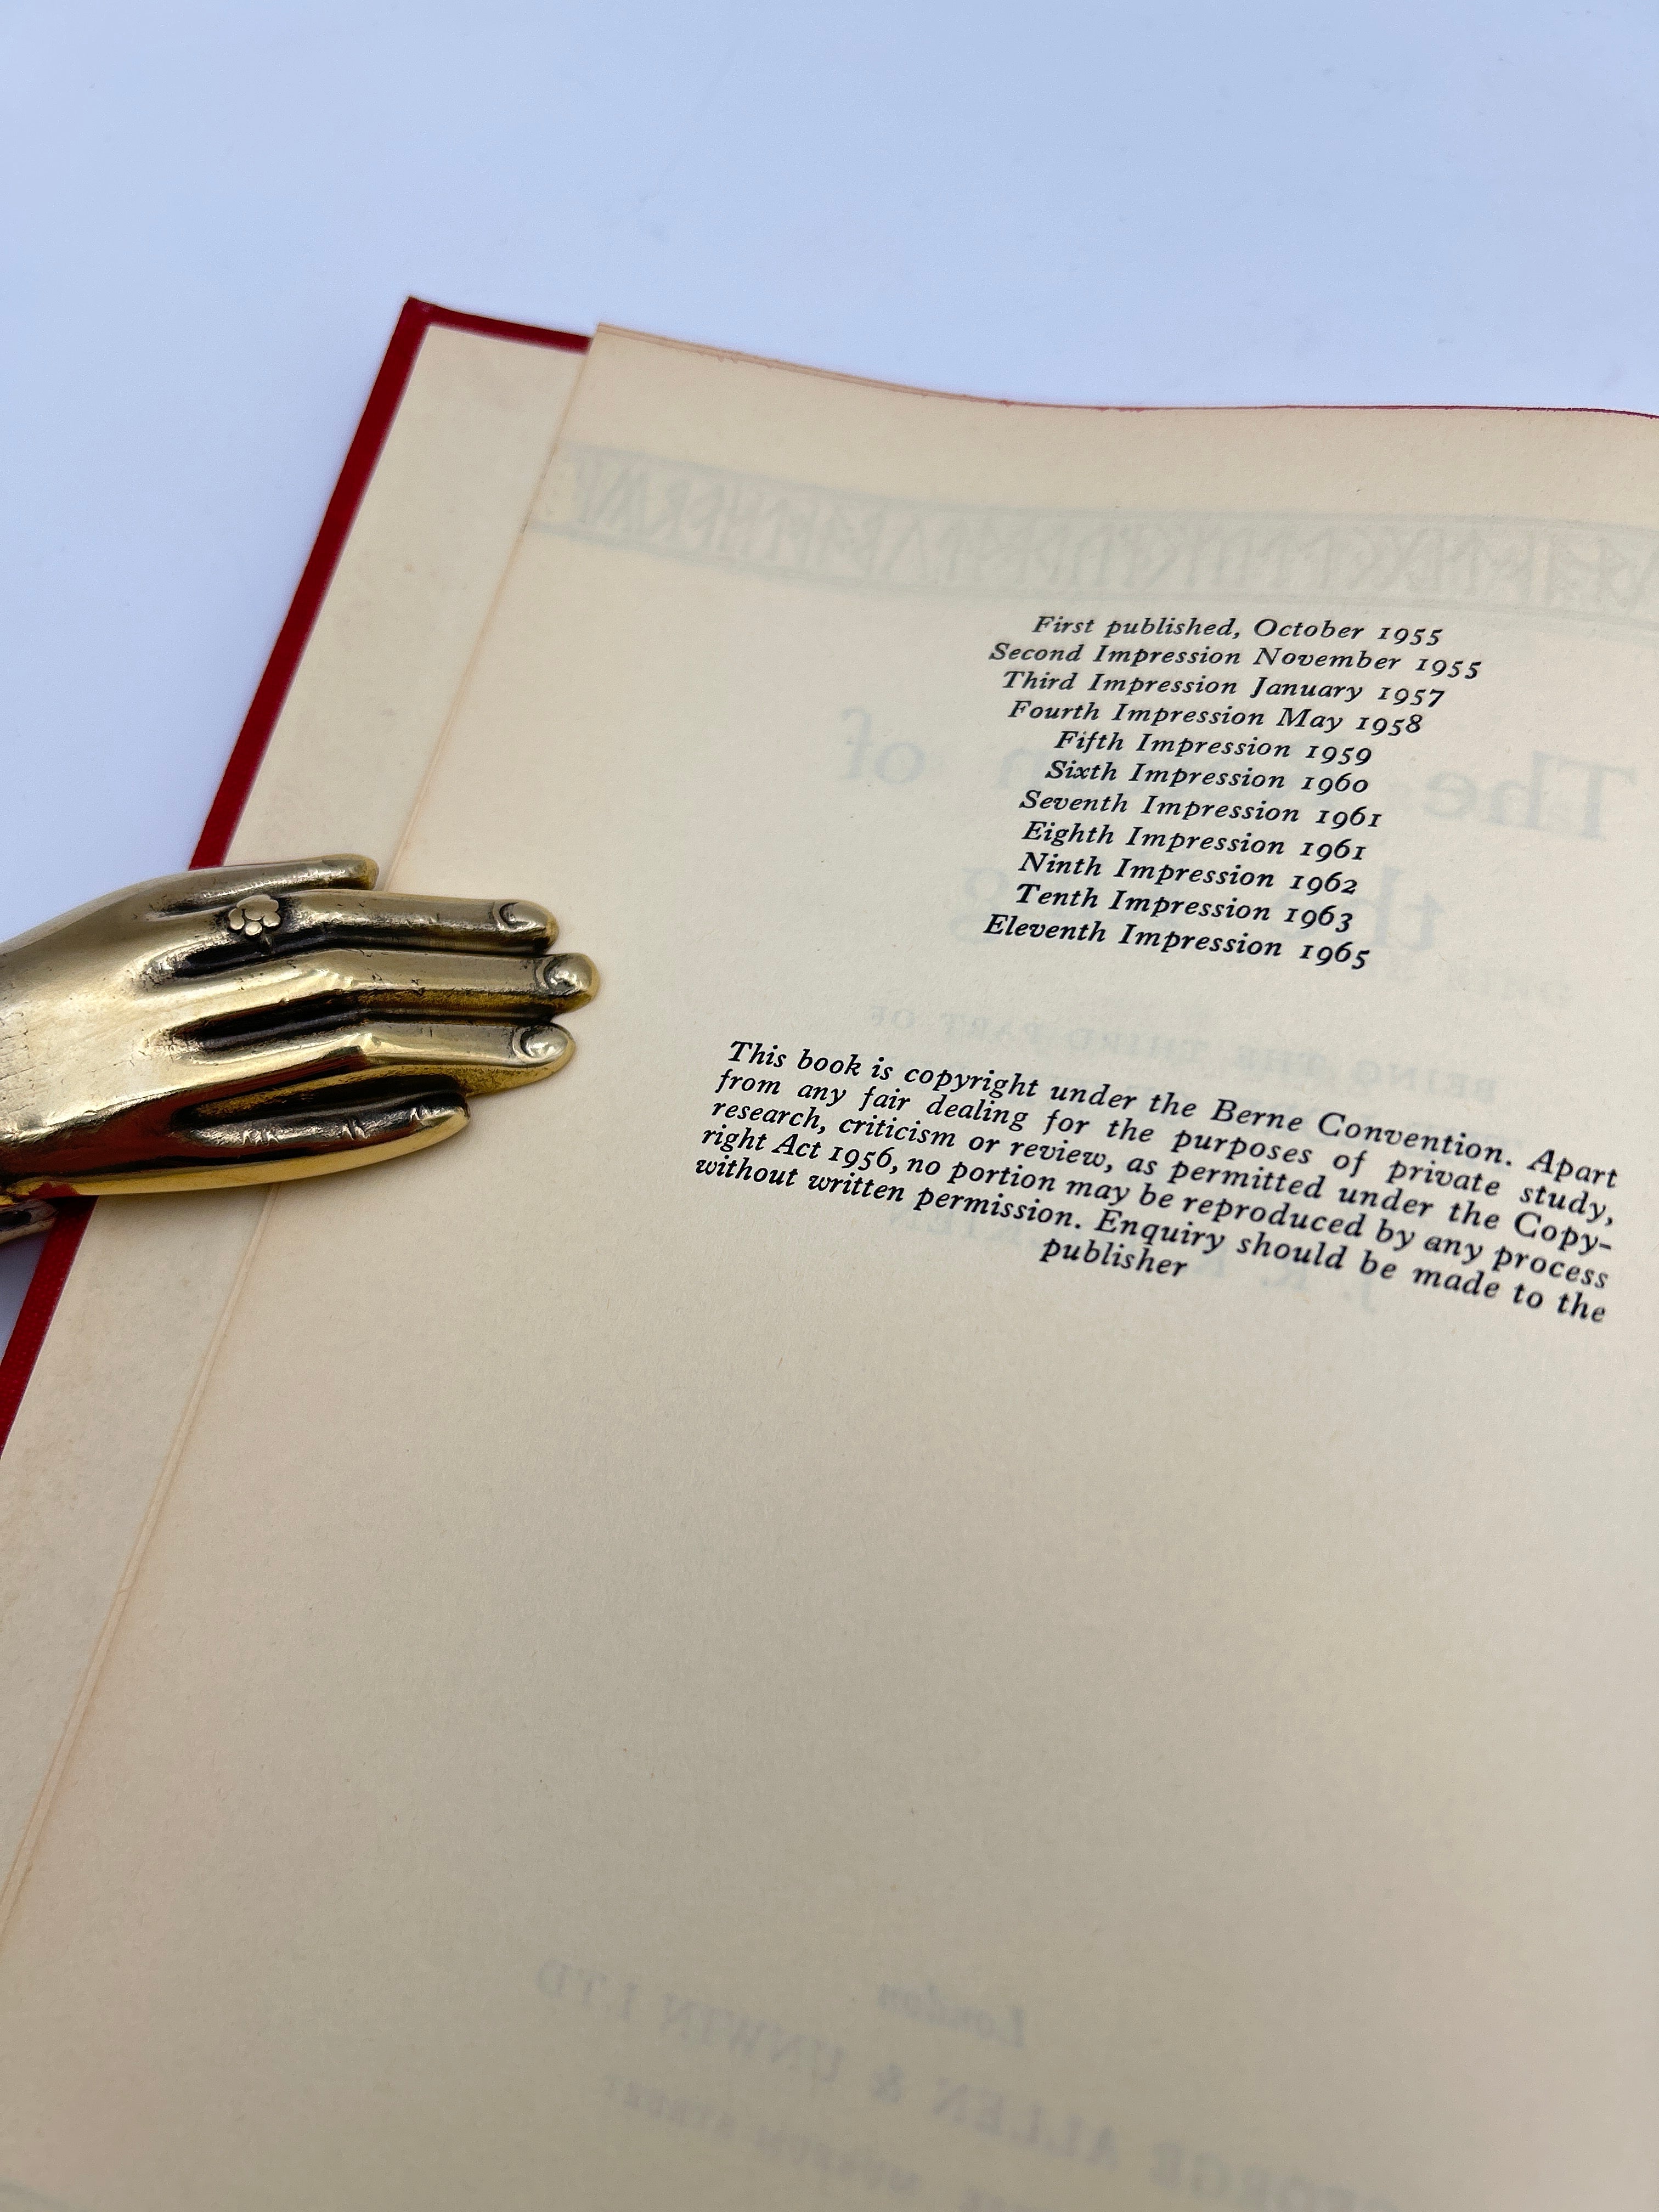 First published, October 1955
Second Impression November 1955
Third Impression January 1957
Fourth Impression May 1958
Fifth Impression 1959
Sixth Impression 1960
Seventh Impression 1961
Eighth Impression 1961
Ninth Impression 1962
Tenth Impression 1963
Eleventh Impression 1965
This book is copyright under the Berne Convention. Apart
from any fair dealing for the purposes of private study,
research, criticism or review, as permitted under the Copy-
right Act 1956, no portion may be reproduced by any process
without written permission. Enquiry should be made to the
publisher
London
GEORGE ALLEN & UNWIN LTD